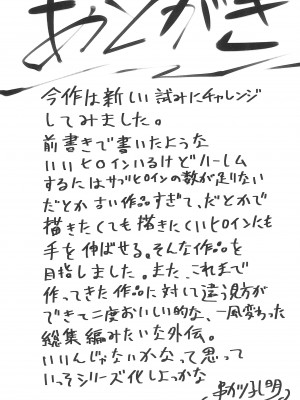 あとがき
今作は新しい試みにチャレンジ
してみました。
前書きで書いたような
いいヒロインいるけどハーレム
するにはサブヒロインの数が足りない
だとか 古い作品すぎて、だとかで
描きたくても描きにくいヒロインにも
手を伸ばせる。そんな作品を
目指しました。また、これまで
作ってきた作品に対して違う見方が
できて二度おいしい的な、一風変わった
総集編みたいな外伝。
いいんじゃないかなって思って
いっそシリーズ化しよっかな
串かつよし明